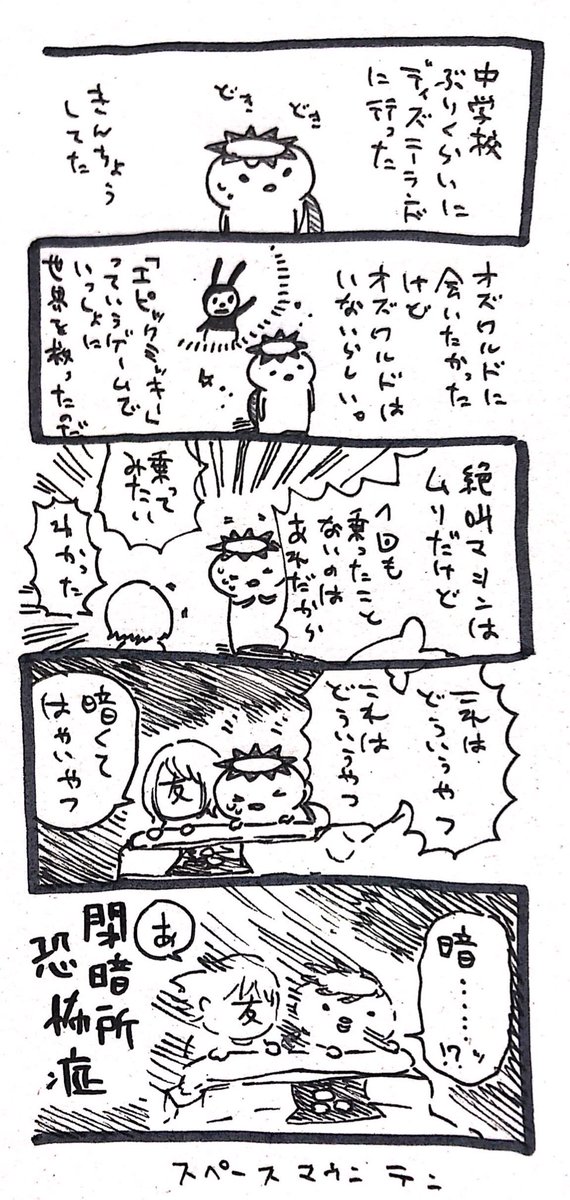 中学校
ぶりくらいに
ディズニーランド
に行った
どき
どき
きんちょう
してた
オズワルドに
会いたかった
けど
オズワルドは
いないらしい。
「エピックミッキー」
っていうゲームで
いっしょに
世界を救ったのだ
絶叫マシンは
ムリだけど
1回も
乗ったこと
ないのは
あれだから
乗って
みたい
わかった
これは
どういうやつ
これは
どういうやつ
友
暗くて
はやいやつ
暗………ッ
!?
友
あ
閉暗所
恐怖症
スペースマウンテン